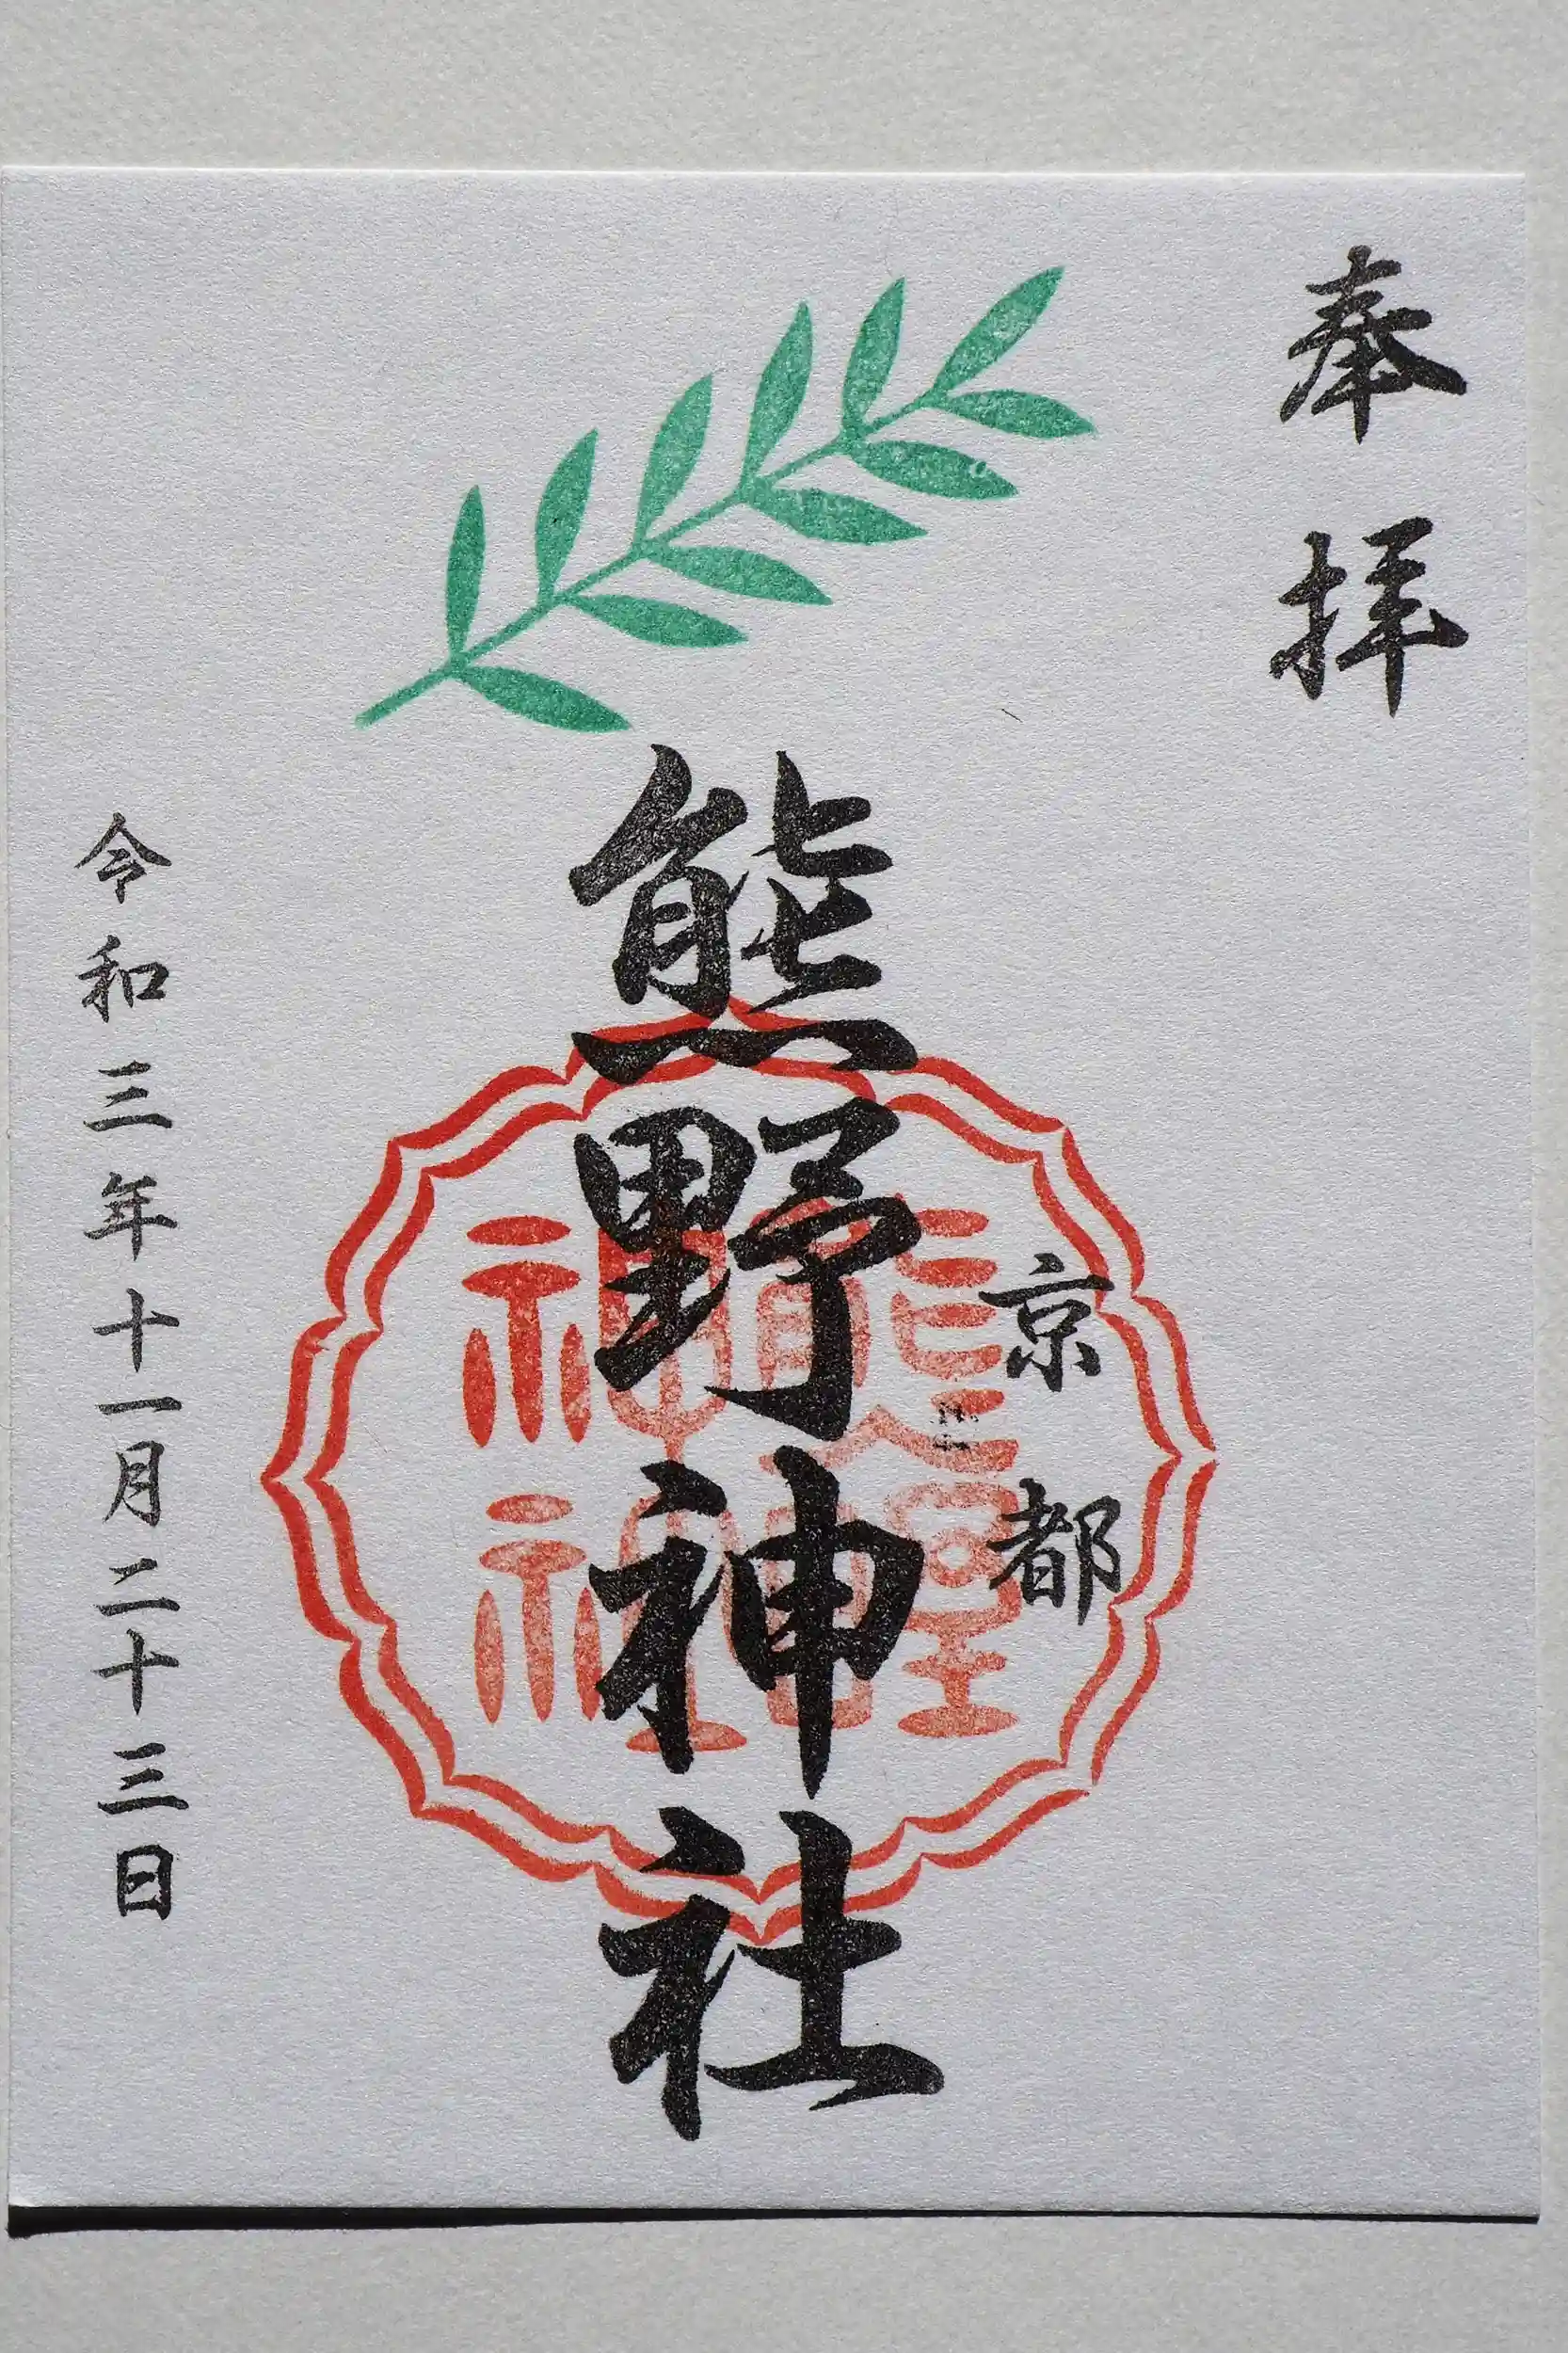 奉拝
京都
熊野神社
令和三年十一月二十三日
熊野神社